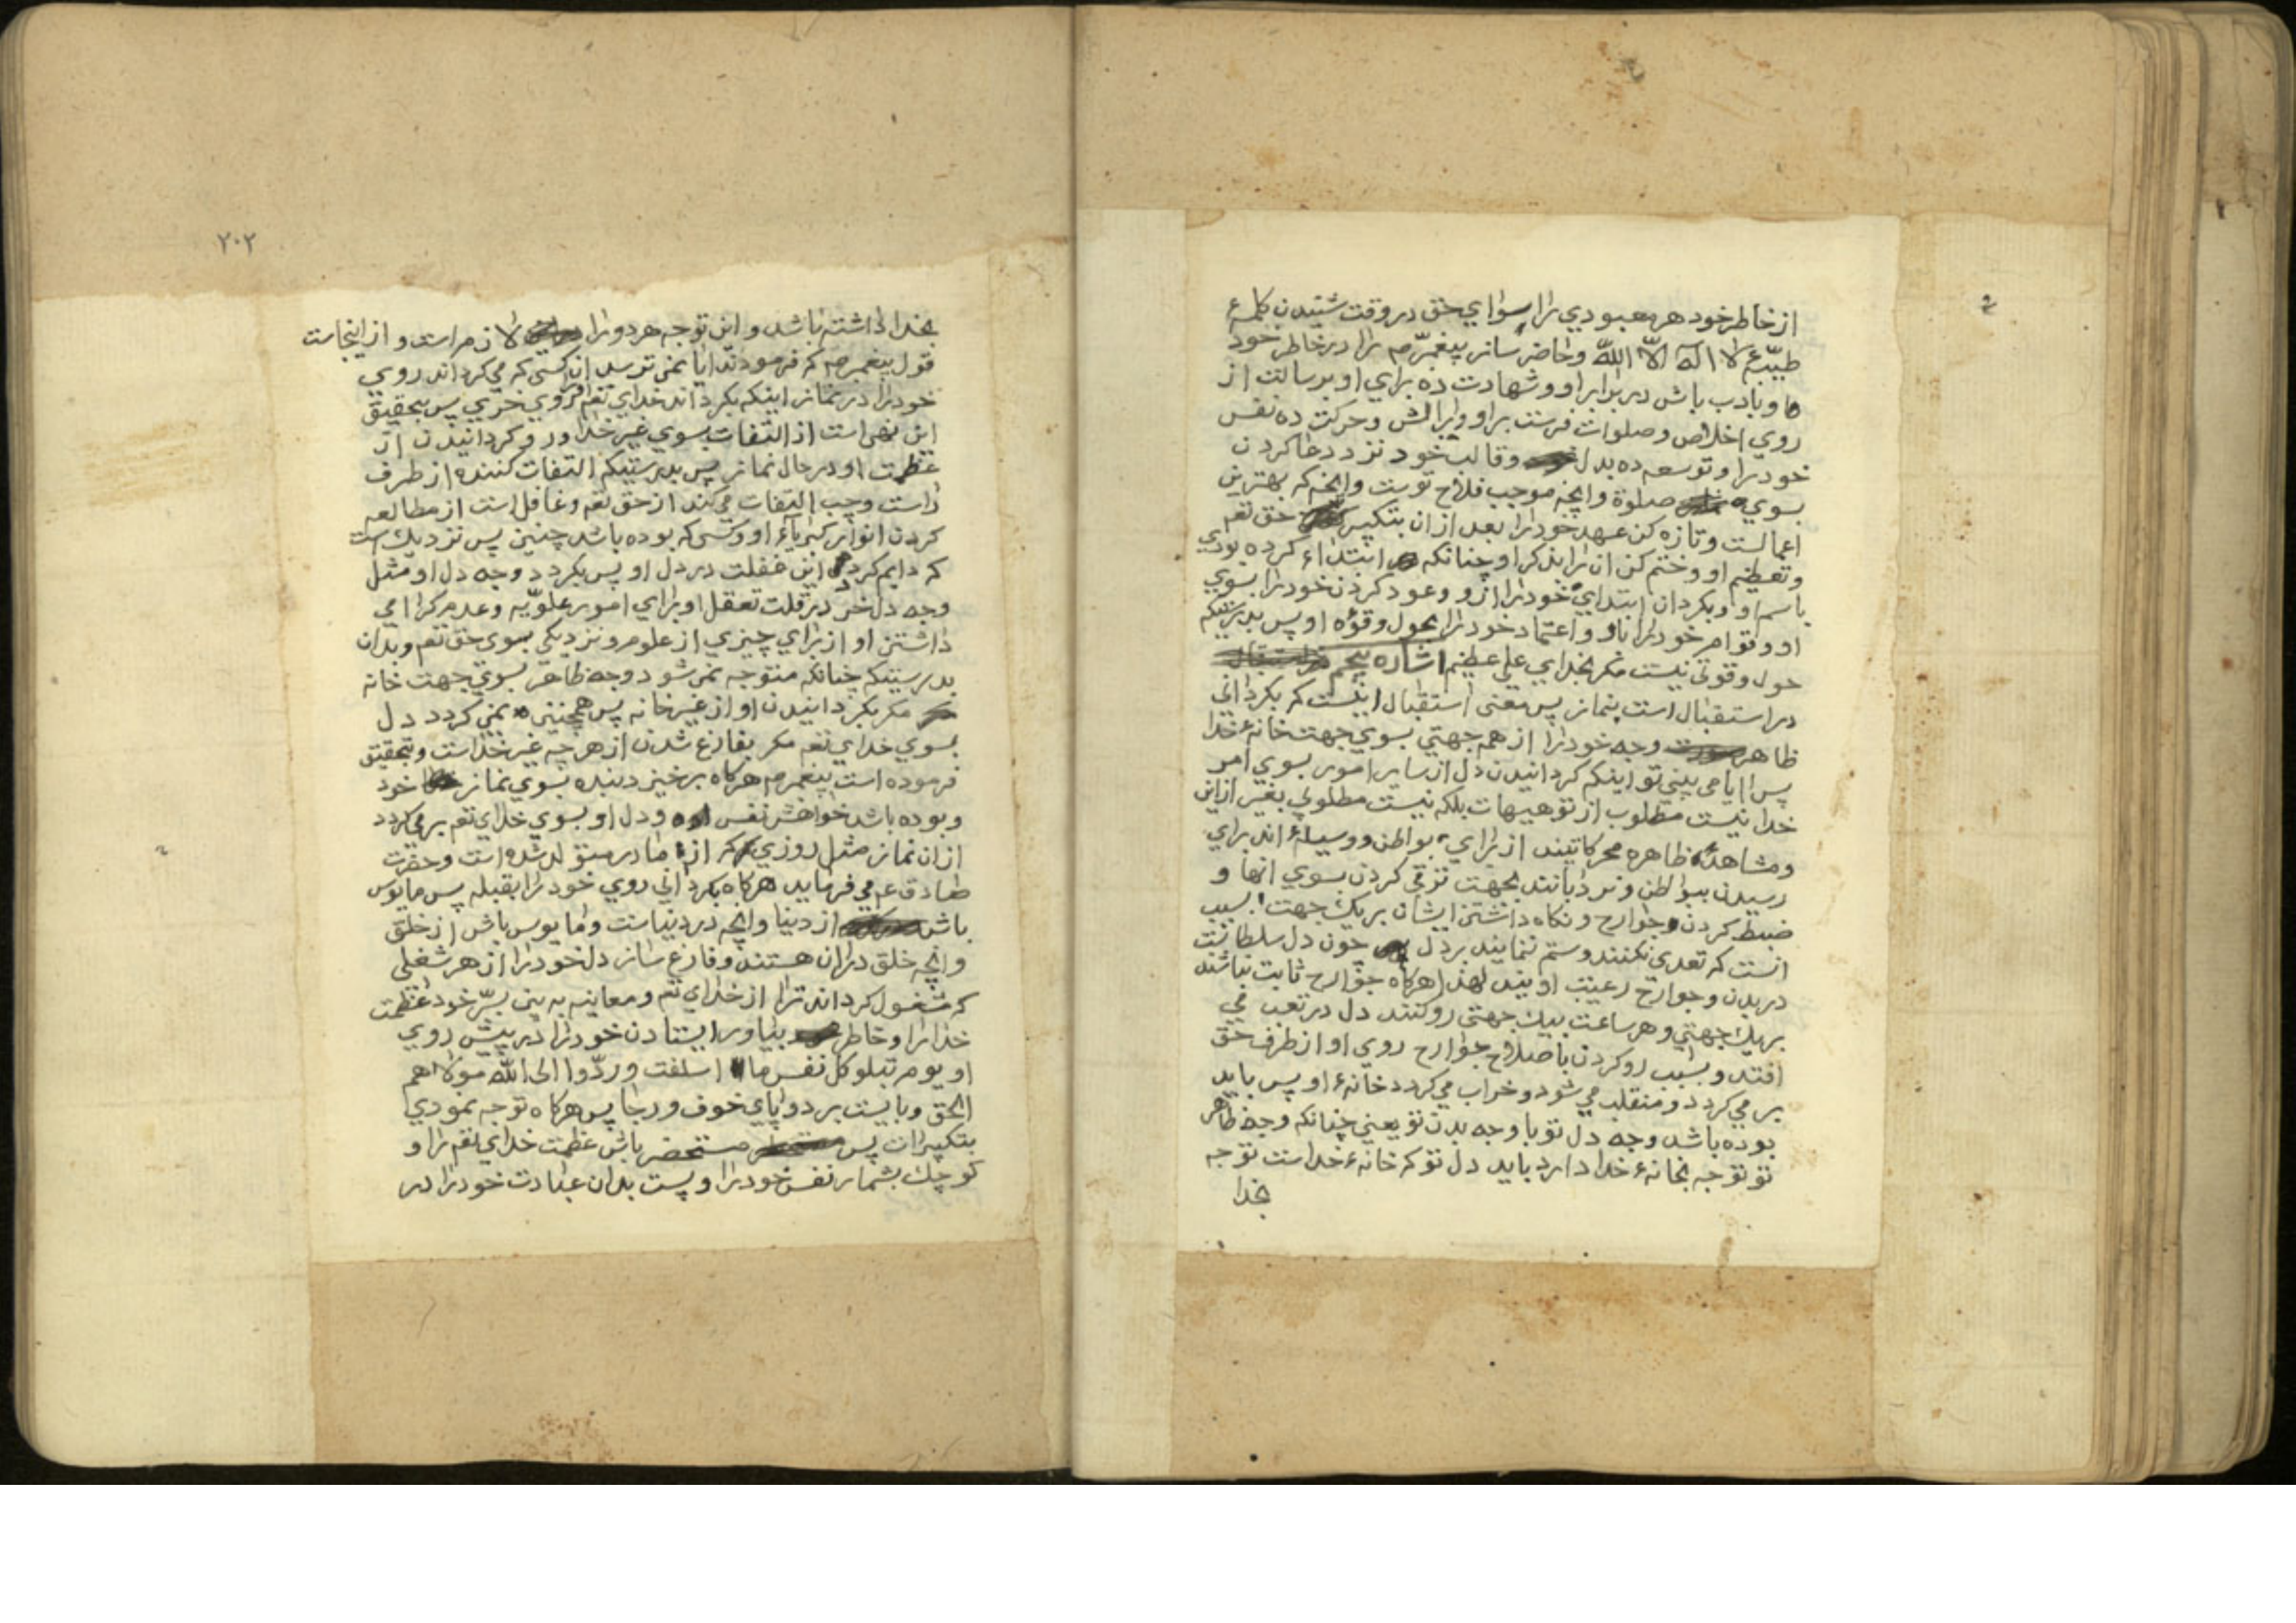 از خاطر خود هر معبودي را سواي حق در وقت شنيدن كلمهٔ
طيّبهٔ لا اله الّا اللّه و حاضر ساز پيغمبر ص را در خاطر خود
و با ادب باش در برابر او و شهادت ده براي او برسالت از
روي اخلاص و صلوات فرست بر او و برالش و حركت ده نفس
خود را و توسعه ده بدل و قالب خود نزد دعا كردن
بسوي صلوة و انچه موجب فلاح توست و انچه كه بهترين
اعمالست و تازه كن عهد خود را بعد از ان بتكبير حق تعم
و تعظيم او و ختم كن ان را بذكر او چنانكه ابتداء كرده بودي
باسم او و بكردان ابتداي خود را ازو و عود كردن خود را بسوي
او و قوام خود را باو و اعتماد خود را بحول و قوّه او پس بدرستيكه
حول و قوتي نيست مكر بخداي علي عظيم اشاره پنجم
در استقبال است بنماز پس معني استقبال اينست كه بكرداني
ظاهر وجه خود را از همه جهتي بسوي جهت خانهٔ خدا
پس ايا مي بيني تو اينكه كردانيدن دل از ساير امور بسوي امر
خدا نيست مطلوب از تو هيهات بلكه نيست مطلوبي بغير ازاين
و مشاهدهٔ ظاهره محركاتيند از براي بواطن و وسيلهٔ اند براي
رسيدن ببواطن و نردبانند بجهت ترقي كردن بسوي انها و
ضبط كردن جوارح و نكاه داشتن ايشان بر يك جهت بسبب
انست كه تعدي نكنند و ستم ننمايند بر دل چون دل سلطانست
در بدن و جوارح رعيت اويند لهذا هركاه جوارح ثابت نباشند
بر يك جهتي و هر ساعت بيك جهتي رو كنند دل در تعب مي
افتد و بسبب رو كردن باصلاح جوارح روي او از طرف حق
بر مي كردد و منقلب مي شود و خراب مي كردد خانهٔ او پس بايد
بوده باشد وجه دل تو با وجه بدن تو يعني چنانكه وجه ظاهر
تو توجه بخانهٔ خدا دارد بايد دل تو كه خانهٔ خداست توجه
بخدا
٢٠٢
بخدا داشته باشد و اين توجه هر دو را لازم است و از اينجاست
قول پيغمبر ص كه فرمودند ايا نمي ترسد ان كسي كه مي كرداند روي
خود را در نماز اينكه بكرداند خداي تعم روي خري پس بتحقيق
اين نهي است از التفات بسوي غير خدا و رو كردانيدن از
عظمت او در حال نماز پس بدرستيكه التفات كننده از طرف
راست و چپ التفات مي كند از حق تعم و غافل است از مطالعه
كردن انوار كبرياء او و كسي كه بوده باشد چنين پس نزديك است
كه دايم كردد اين غفلت در دل او پس بكردد وجه دل او مثل
وجه دل خر در قلت تعقل او براي امور علويّه و عدم كرامي
داشتن او از براي چيزي از علوم و نزديكي بسوي حق تعم و بدان
بدرستيكه چنانكه متوجه نمي شود وجه ظاهر بسوي جهت خانه
مكر بكردانيدن او از غير خانه پس همچنين نمي كردد دل
بسوي خداي تعم مكر بفارغ شدن از هر چه غير خداست و بتحقيق
فرموده است پيغمبر ص هركاه برخيزد بنده بسوي نماز خود
و بوده باشد خواهش نفس او و دل او بسوي خداي تعم بر مي كردد
از ان نماز مثل روزي كه از مادر متولد شده است و حضرت
صادق ع مي فرمايد هركاه بكرداني روي خود را بقبله پس مايوس
باش از دنيا و انچه در دنياست و مايوس باش از خلق
و انچه خلق دران هستند و فارغ ساز دل خود را از هر شغلي
كه مشغول كرداند ترا از خداي تعم و معاينه به بين بسرّ خود عظمت
خدا را و خاطر بياور ايستادن خود را در پيش روي
او يوم تبلو كل نفس ما اسلفت و ردّوا الى اللّه مولاهم
الحق و بايست بر دو پاي خوف و رجا پس هركاه توجه نمودي
بتكبيرات پس مستحضر باش عظمت خداي تعم را و
كوچك بشمار نفس خود را و پست بدان عبادت خود را در